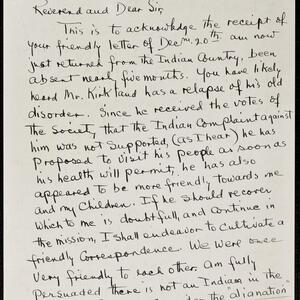 Reverend and Dear Sir,
This is to acknowledge the receipt of
your friendly letter of Decm. 20th am now
just returned from the Indian Country, been
absent nearly five months. You have likely
heard Mr. Kirkland has a relapse of his old
disorder. Since he received the votes of
the Society, that the Indian Complaint against
him was not supported, (as I hear) he has
proposed to visit his people as soon as
his health will permit, he has also
appeared to be more friendly towards me
and my Children. If he should recover
which to me is doubtfull, and continue in
the mission, I shall endeavor to cultivate a
friendly correspondence. We were once
very friendly to each other. Am fully
Persuaded there is not an Indian in the